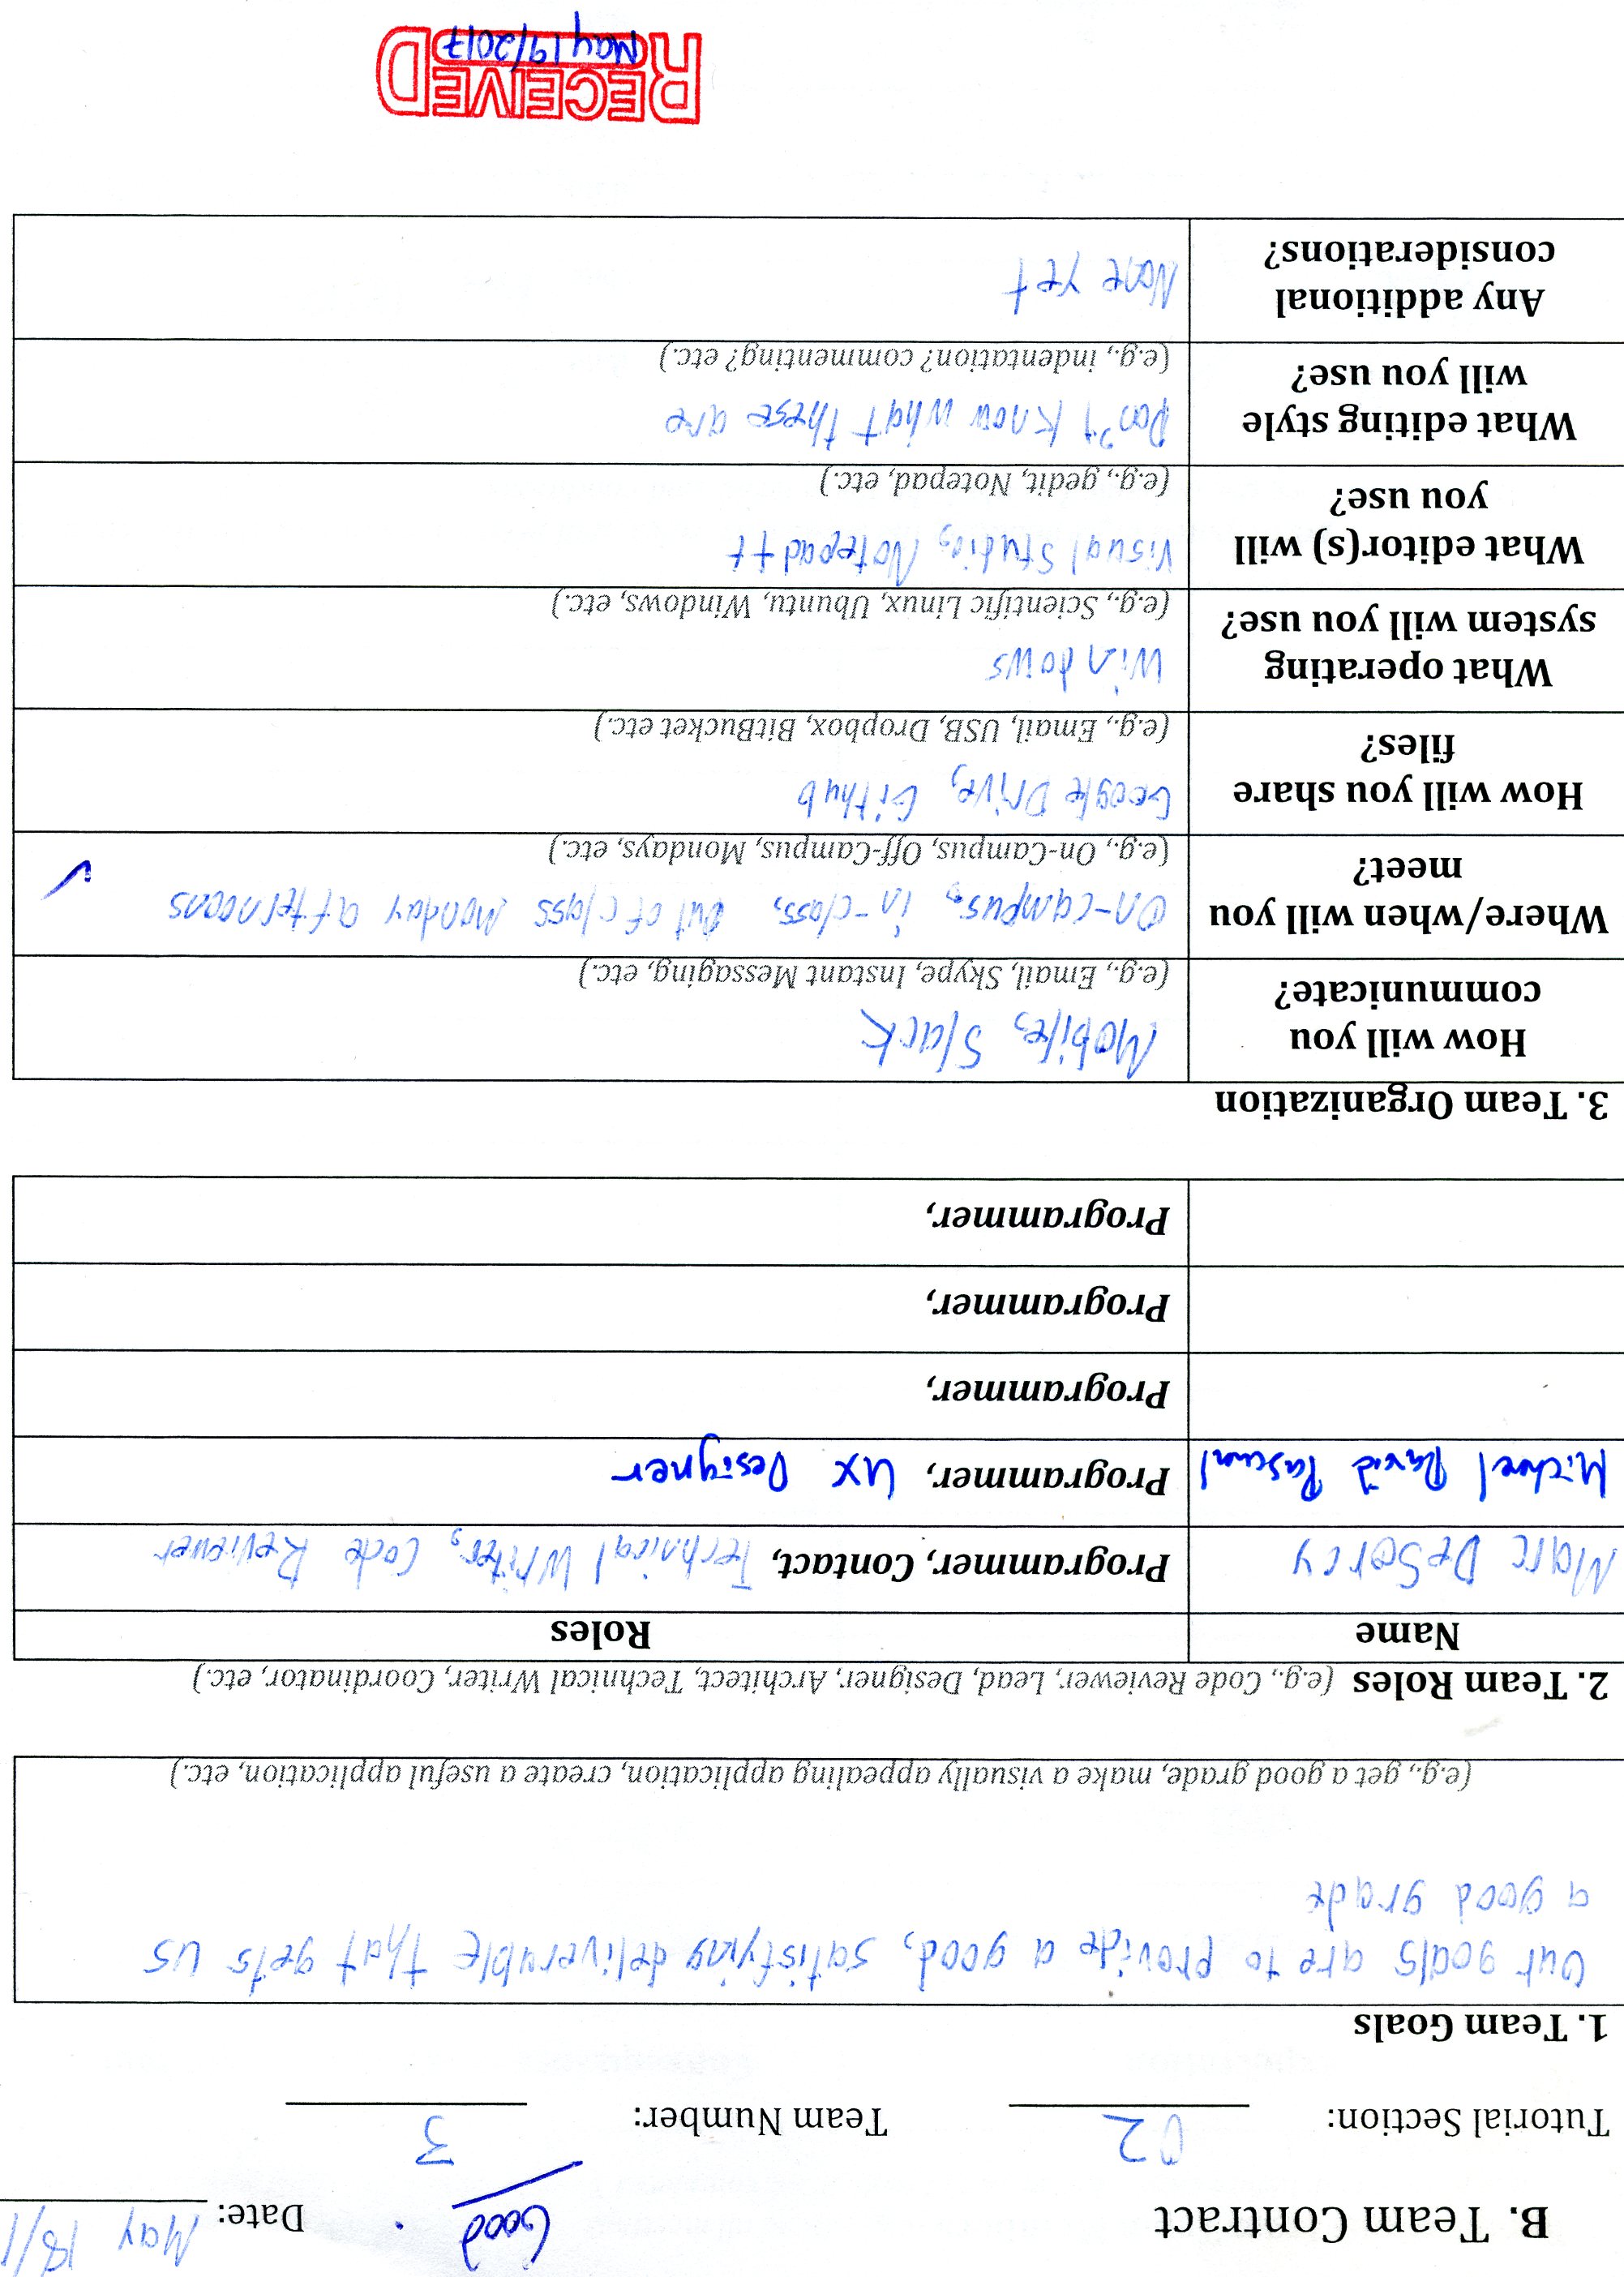 B. Team Contract Good . Date: May 18/1
Tutorial Section: 02 Team Number: 3
1. Team Goals
Our goals are to provide a good, satisfying deliverable that gets us
a good grade
(e.g., get a good grade, make a visually appealing application, create a useful application, etc.)
2. Team Roles (e.g., Code Reviewer, Lead, Designer, Architect, Technical Writer, Coordinator, etc.)
Name Roles
Marc DeSorcy Programmer, Contact, Technical Writer, Code Reviewer
Michael David Pascual Programmer, UX Designer
Programmer,
Programmer,
Programmer,
3. Team Organization
How will you
communicate?
Mobile, Slack
(e.g., Email, Skype, Instant Messaging, etc.)
Where/when will you
meet?
On-campus, in-class, out of class Monday afternoons
(e.g., On-Campus, Off-Campus, Mondays, etc.)
How will you share
files?
Google Drive, Github
(e.g., Email, USB, Dropbox, BitBucket etc.)
What operating
system will you use?
Windows
(e.g., Scientific Linux, Ubuntu, Windows, etc.)
What editor(s) will
you use?
Visual Studio, Notepad++
(e.g., gedit, Notepad, etc.)
What editing style
will you use?
Don't know what these are
(e.g., indentation? commenting? etc.)
Any additional
considerations?
None yet
RECEIVED
May 19/2017